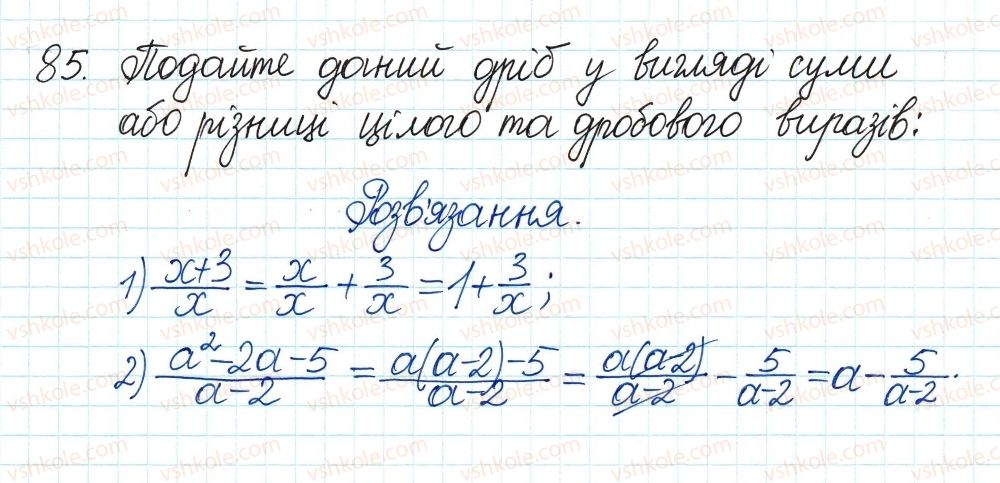 85. Подайте даний дріб у вигляді суми
або різниці цілого та дробового виразів:
Розв'язання.
1) \frac{x+3}{x} = \frac{x}{x} + \frac{3}{x} = 1 + \frac{3}{x};
2) \frac{a^2-2a-5}{a-2} = \frac{a(a-2)-5}{a-2} = \frac{a(a-2)}{a-2} - \frac{5}{a-2} = a - \frac{5}{a-2}.